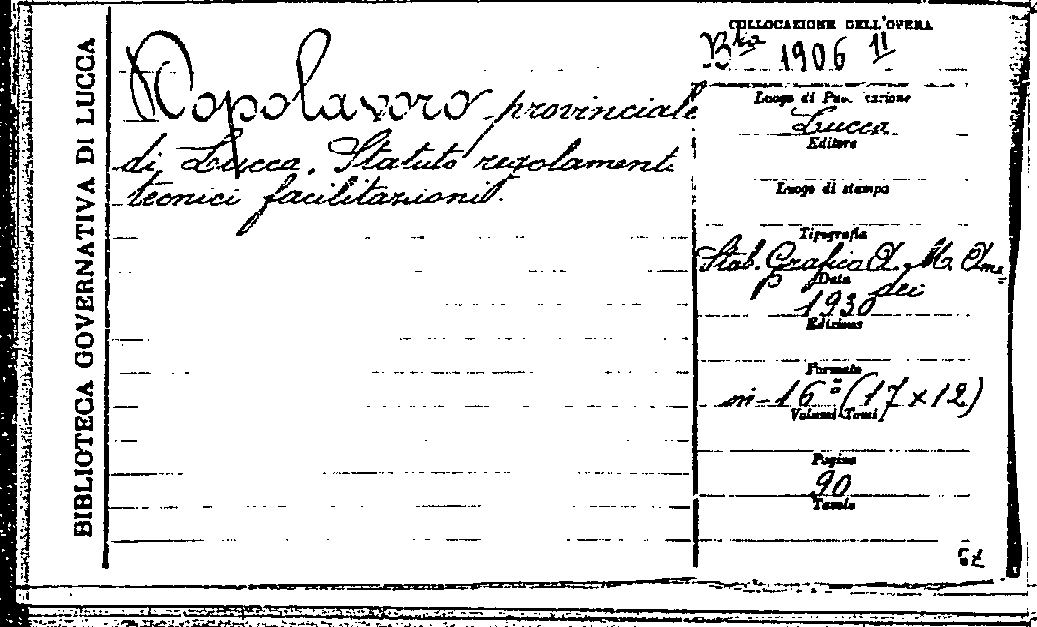 BIBLIOTECA GOVERNATIVA DI LUCCA
Dopolavoro provinciale
di Lucca. Statuto regolamenti
tecnici facilitazioni.
COLLOCAZIONE DELL'OPERA
Bta 1906 11
Luogo di Pubblicazione
Lucca
Editore
Luogo di stampa
Tipografia
Stab. Grafica A. M. Ame
dei
Data
1930
Edizione
Formato
in-16º (17 x 12)
Volumi Tomi
Pagine
90
Tavole